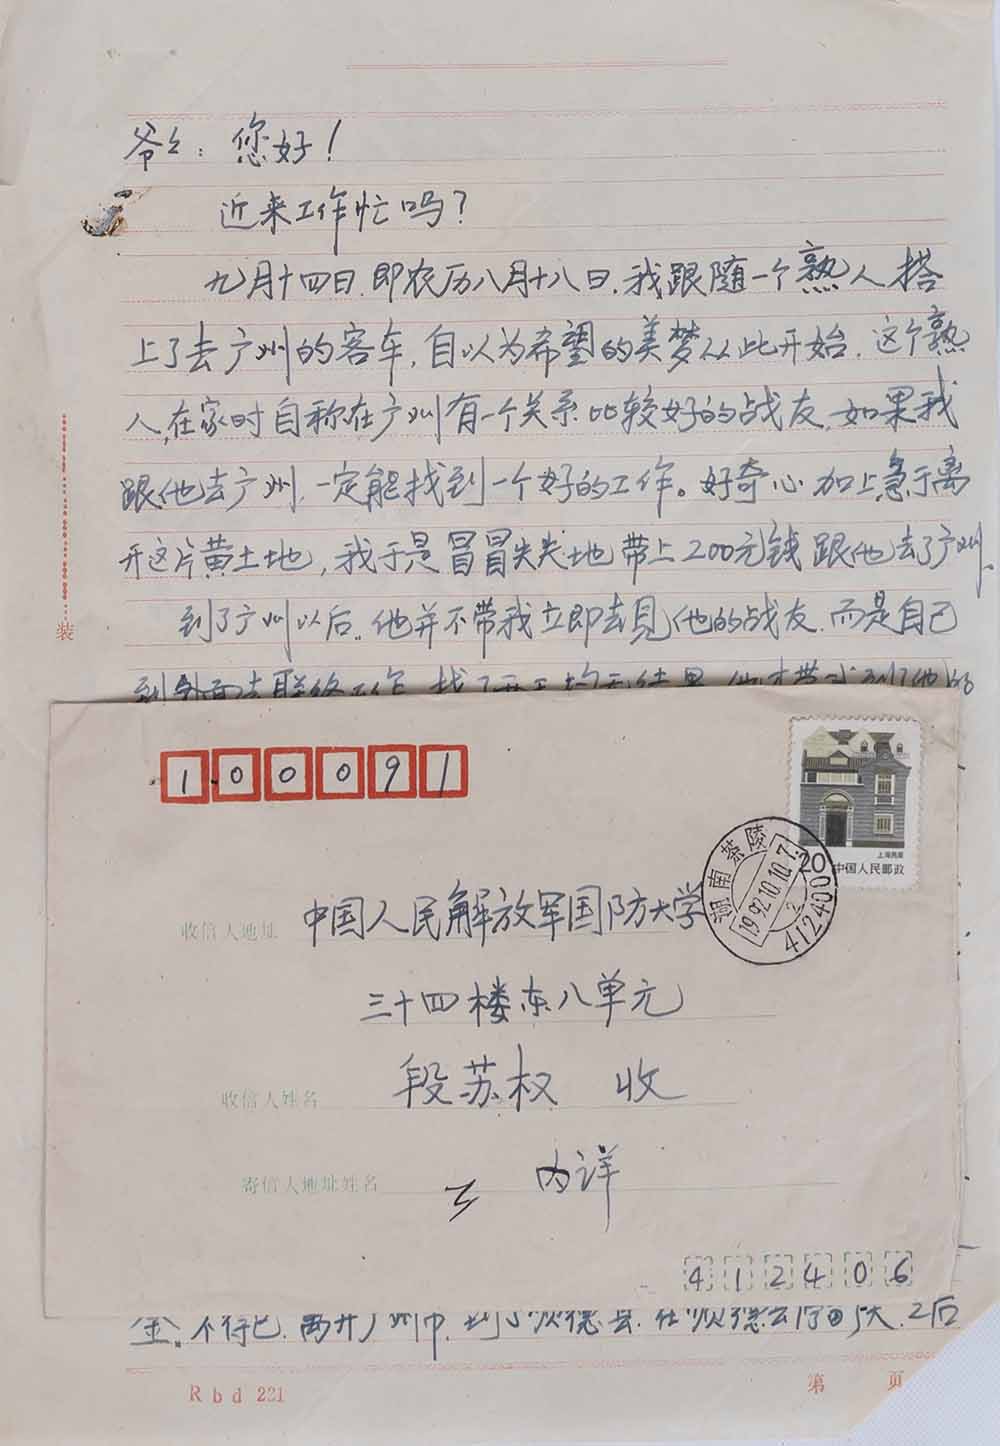 爷々：您好！
近来工作忙吗？
九月十四日，即农历八月十八日，我跟随一个熟人搭
上了去广州的客车，自以为希望的美梦从此开始．这个熟
人，在家时自称在广州有一个关系比较好的战友，如果我
跟他去广州，一定能找到一个好的工作。好奇心加上急于离
开这片黄土地，我于是冒冒失失地带上200元钱跟他去了广州．
到了广州以后，他并不带我立即去见他的战友，而是自己
装
100091
上海民居
20
中国人民邮政
湖南茶陵
1992.10.10.7
2
412400
收信人地址 中国人民解放军国防大学
三十四楼东八单元
收信人姓名 段苏权 收
寄信人地址姓名 内详
412406
不得已，离开广州市，到了顺德县，在顺德
Rbd 221
第 页